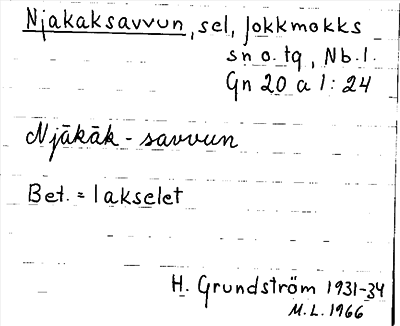 Njakaksavvun, sel, Jokkmokks
sn o. tg, Nb. l.
Gn 20 a 1:24
Njākāk-savvun
Bet. = lakselet
H. Grundström 1931-34
M.L. 1966